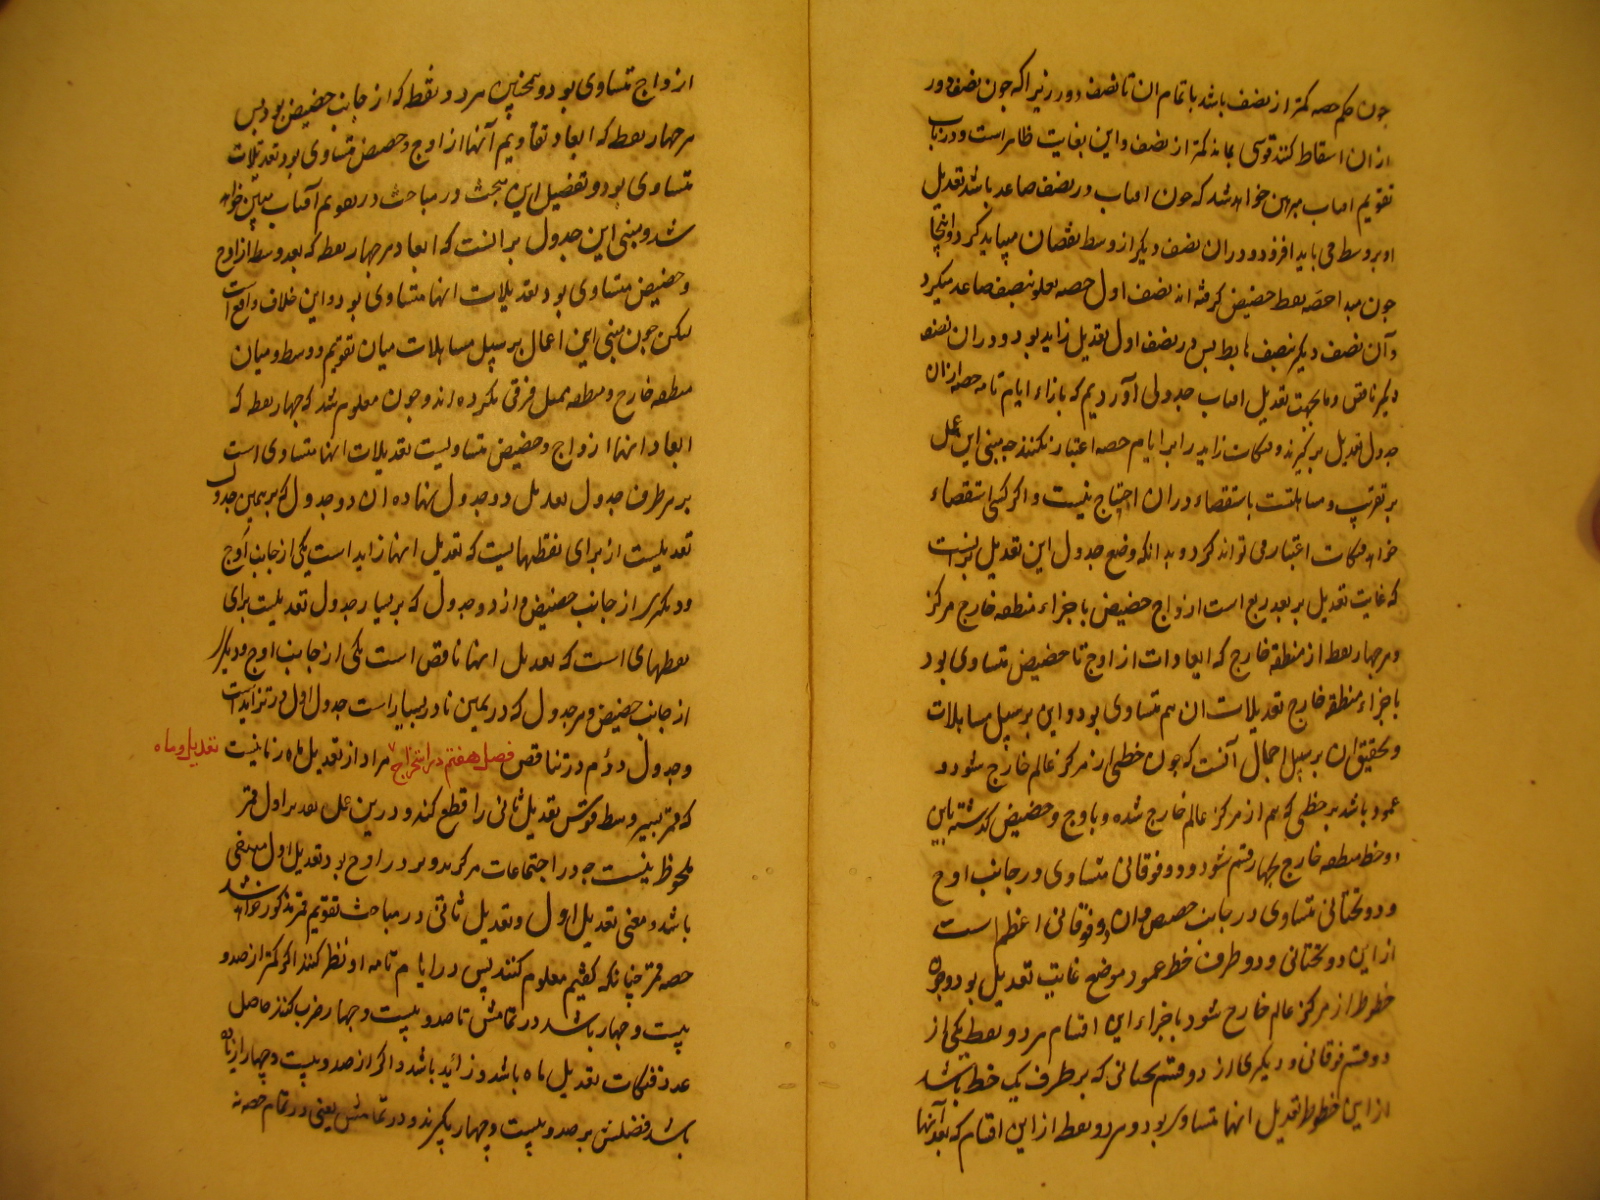 چون حکم حصه کمتر از نصف باشد با تمام ان تا نصف دور زیرا که چون نصف دور
از ان اسقاط کنند قوسی بماند کمتر از نصف و این بغایت ظاهر است و در باب
تقویم افتاب مبرهن خواهد شد که چون افتاب در نصف صاعد باشد تعدیل
او بر وسط می باید افزود و در ان نصف دیکر از وسط نقصان میباید کرد و اینجا
چون مبدا حصه نقطه حضیض کرفته اند نصف اول حصه تعلق بنصف صاعد میکیرد
و آن نصف دیکر بنصف هابط پس در نصف اول تعدیل زاید بود و در ان نصف
دیکر ناقص و ما بجهت تعدیل افتاب جدولی آوردیم که بازاء ایام تامه حصه از ان
جدول تعدیل بر کیرند و فنکات زاید را بر ایام حصه اعتبار نکنند چه مبنی این عمل
بر تقریب و مساهلتست باستقصاء در ان احتیاج نیست و اکر کسی استقصاء
خواهد فنکات اعتبار می تواند کرد و بدانکه وضع جدول این تعدیل بر انست
که غایت تعدیل بر بعد ربع است از اوج حضیض باجزاء منطقه خارج مرکز
و هر چهار نقطه از منطقه خارج که ابعاد ات از اوج تا حضیض متساوی بود
باجزاء منطقه خارج تعدیلات ان هم متساوی بود و این بر سبیل مساهلات
و تحقیق ان بر سبیل اجمال آنست که چون خطی از مرکز عالم خارج شود و
عمود باشد بر خطی که هم از مرکز عالم خارج شده و باوج و حضیض کذشته باین
دو خط منطقه خارج بچهار قسم شود دو فوقانی متساوی در جانب اوج
و دو تحتانی متساوی در جانب حضیض و ان دو فوقانی اعظم است
از این دو تحتانی و دو طرف خط عمود موضع غایت تعدیل بود و چون
خطوط از مرکز عالم خارج شود باجزاء این اقسام هر دو نقطه یکی از
دو قسم فوقانی و دیکری از دو قسم تحتانی که بر طرف یک خط باشد
از این خطوط تعدیل انها متساوی بود و هر دو نقطه از این اقسام که بعد آنها
از اوج متساوی بود و همچنین هر دو نقطه که از جانب حضیض بود پس
هر چهار نقطه که ابعاد تقاویم آنها از اوج و حضیض متساوی بود تعدیلات
متساوی بود و تفصیل این مبحث در مباحث در تقویم آفتاب مبین خواهد
شد و مبنی این جدول بر انست که ابعاد هر چهار نقطه که بعد وسط از اوج
و حضیض متساوی بود تعدیلات انها متساوی بود و این خلاف واقع است
لیکن چون مبنی این اعمال بر سبیل مساهلات میان تقویم و وسط و میان
منطقه خارج و منطقه ممثل فرقی نکرده اند و چون معلوم شد که چهار نقطه که
ابعاد انها از اوج و حضیض متساویست تعدیلات انها متساوی است
بر هر طرف جدول تعدیل دو جدول نهاده ان دو جدول که بر یمین جدول
تعدیلست از برای نقطهاییست که تعدیل انها زاید است یکی از جانب اوج
و دیکری از جانب حضیض و از دو جدول که بر یسار جدول تعدیلست برای
نقطهای است که تعدیل انها ناقص است یکی از جانب اوج و دیکر
از جانب حضیض و هر جدول که در یمین نا در یسار است جدول اول در تزاید است
و جدول دوم در تناقص فصل هفتم در استخراج تعدیل و ماه مراد از تعدیل ماه زمانیست
که قمر بسیر وسط قوس تعدیل ثانی را قطع کند و درین عمل بعد بر اول قمر
ملحوظ نیست چه در اجتماعات مرکز تدویر در اوج بود تعدیل اول منتفی
باشد و معنی تعدیل اول و تعدیل ثانی در مباحث تقویم قمر مذکور خواهد شد
حصه قمر چنانکه کفتیم معلوم کنند پس در ایام تامه او نظر کنند اکر کمتر از صد و
بیست و چهار باشد در تمامش تا صد و بیست و چهار ضرب کنند حاصل
عدد فنکات تعدیل ماه باشد و زائد باشد و اکر از صد و بیست و چهار زیاده
باشد فضلش بر صد و بیست و چهار بکیرند و در تمامش یعنی در تمام حصه نه